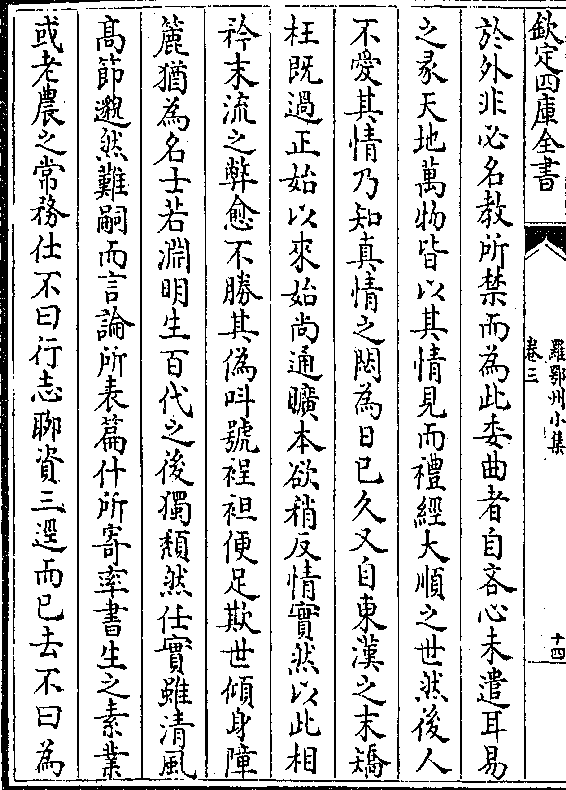 欽定四庫全書
羅鄂州小集
卷三
十四
於外非必名教所禁而為此委曲者自吝心未遣耳易
之彖天地萬物皆以其情見而禮經大順之世然後人
不愛其情乃知真情之閼為日已久又自東漢之末矯
枉既過正始以來始尚通曠本欲稍反情實然以此相
矜末流之弊愈不勝其偽叫號裎袒便足欺世傾身障
簏猶為名士若淵明生百代之後獨頹然任實雖清風
髙節邈然難嗣而言論所表篇什所寄率書生之素業
或老農之常務仕不曰行志聊資三逕而已去不曰為